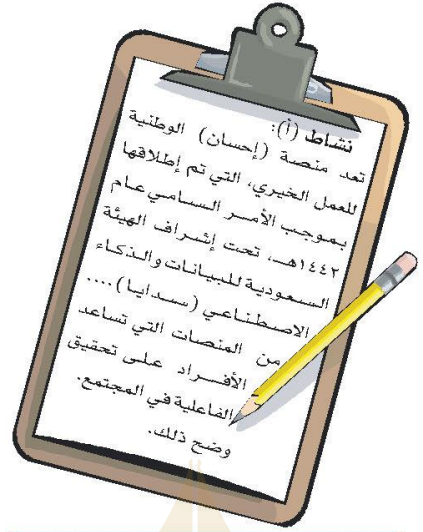 نشاط (أ):
تعد منصة (إحسان) الوطنية
للعمل الخيري، التي تم إطلاقها
بموجب الأمر السامي عام
١٤٤٢هـ، تحت إشراف الهيئة
السعودية للبيانات والذكاء
الاصطناعي (سدايا)....
من المنصات التي تساعد
الأفراد على تحقيق
الفاعلية في المجتمع.
وضح ذلك.